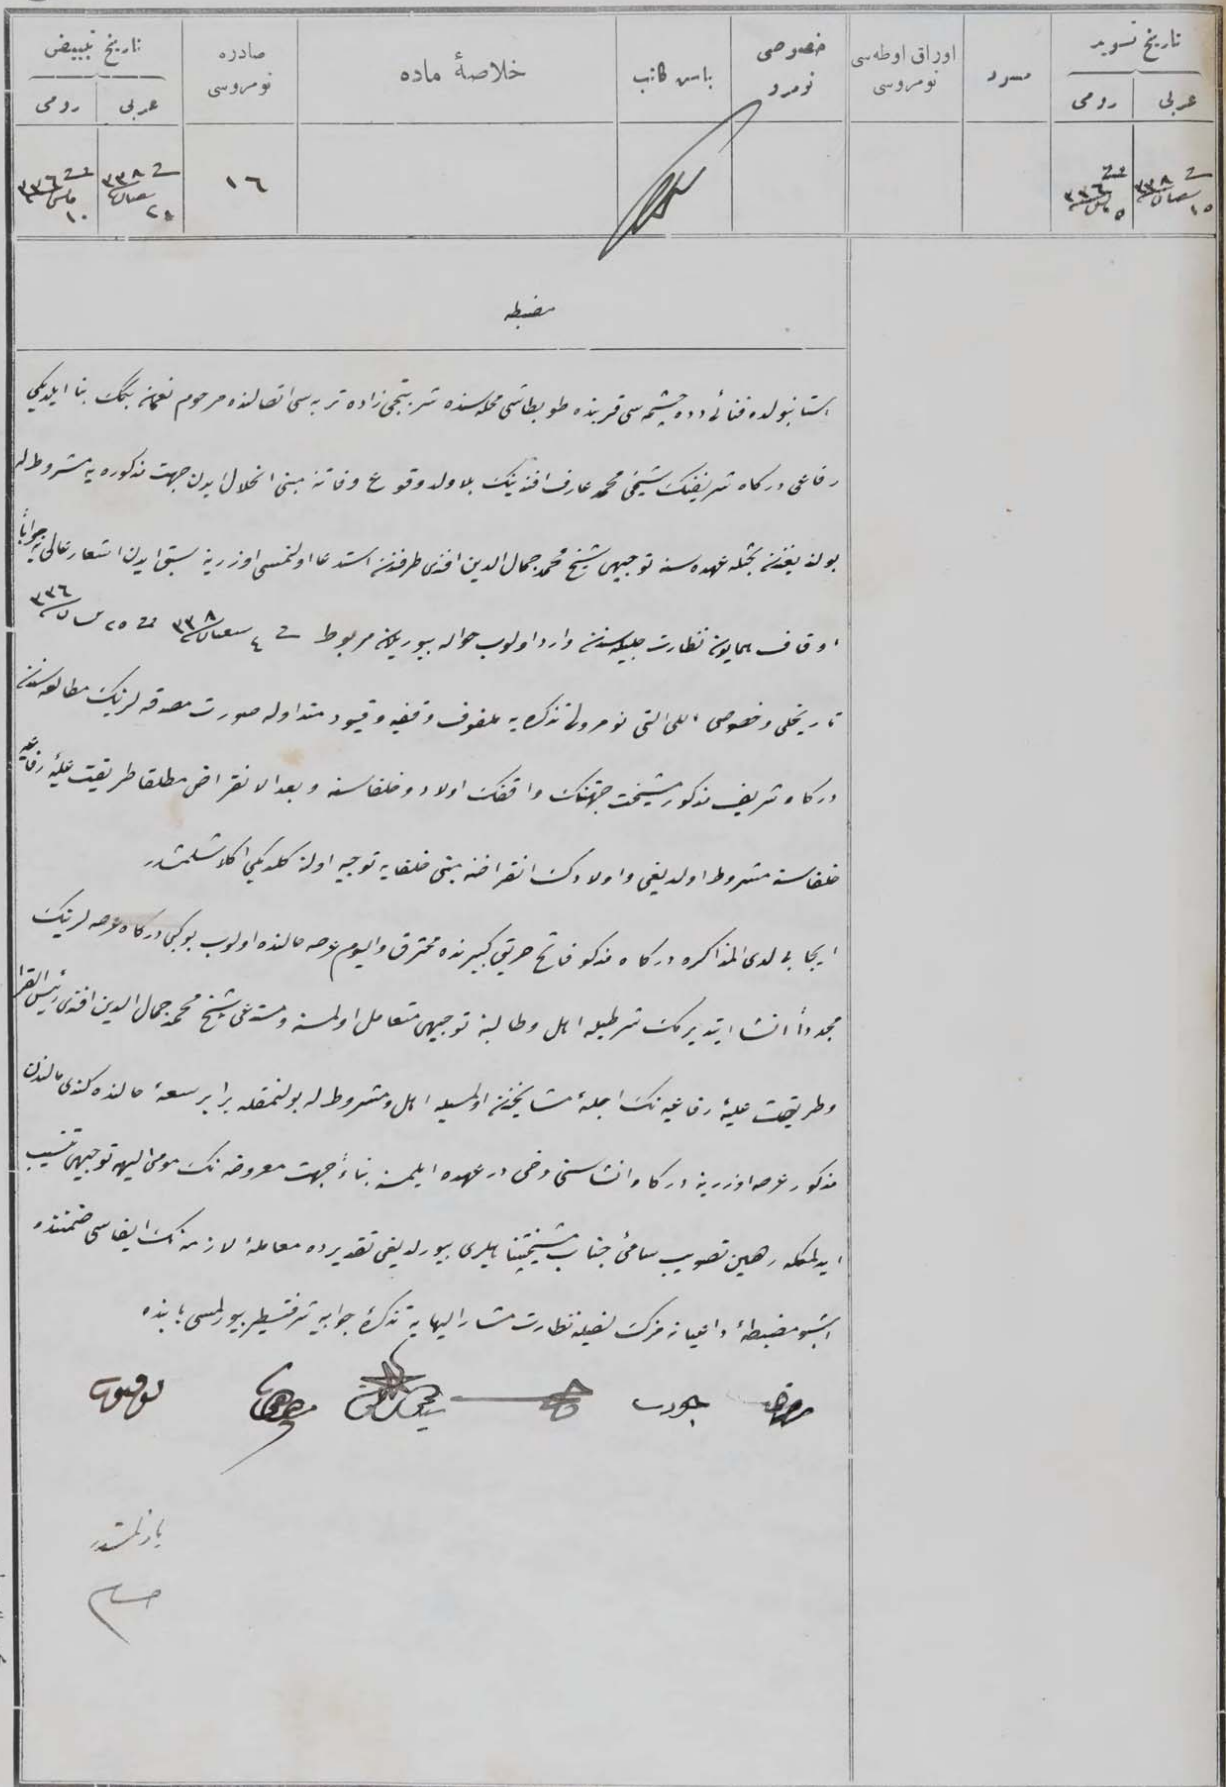 تاریخ تسوید
عربی
رومی
مسود
اوراق اوطه‌سی نومروسی
خصوصی نومرو
باش كاتب
خلاصهٔ ماده
صادره نومروسی
تاریخ تبییض
عربی
رومی
١٥ شعبان ٣٣٨
٥ مایس ٣٣٦
١٦
شعبان ٣٣٨
١٠ مایس ٣٣٦
مضبطه
استانبولده فنائی دده چشمه‌سی قربنده طوبطاشی محله‌سنده شربتجی زاده تربه‌سی اتصالنده مرحوم نعمان بگك بنا ایلدیكی
رفاعی درگاه شریفنك شیخی محمد عارف افندینك بلا ولد وقوع وفاتنه مبنی انحلال ایدن جهت مذكوره‌یه مشروط له
بولندیغندن بحثله عهده‌سنه توجیهی شیخ محمد جمال الدین افندی طرفندن استدعا اولنمسی اوزرینه سبق ایدن اشعار عالی‌یه جواباً
اوقاف همایون نظارت جلیله‌سندن وارد اولوب حواله بیوریلان مربوط فی ٤ شعبان ٣٣٨ و فی ٢٥ نیسان ٣٣٦
تاریخلی و خصوصی اللی التی نومرولی تذكره‌یه ملفوف وقفیه و قیود متداوله صورت مصدقه‌لرینك مطالعه‌سندن
درگاه شریف مذكور مشیخت جهتنك واقفك اولاد و خلفاسنه و بعد الانقراض مطلقا طریقت علیهٔ رفاعیه
خلفاسنه مشروط اولدیغی و اولادك انقراضنه مبنی خلفایه توجیه اولنه كلدیكی اكلاشلمشدر
ایجابی لدی المذاكره درگاه مذكور فاتح حریق كبیرنده محترق و الیوم عرصه حالنده اولوب بوكبی درگاه عرصه‌لرینك
مجدداً انشا ایتدیرمك شرطیله اهل و طالبنه توجیهی متعامل اولمسنه و مستدعی شیخ محمد جمال الدین افندی رئیس القرا
و طریقت علیهٔ رفاعیه‌نك اجلهٔ مشایخندن اولمسیله اهل و مشروط له بولنمقله برابر سعهٔ حالنده كندی مالندن
مذكور عرصه اوزرینه درگاه انشاسنی دخی درعهده ایلمسنه بناءً جهت معروضه‌نك مومی الیهه توجیهی تنسیب
ایدلمكله رهین تصویب سامیٔ جناب مشیختپناهیلری بیورلدیغی تقدیرده معاملهٔ لازمه‌نك ایفاسی ضمننده
اشبو مضبطهٔ داعیانه‌مزك لفیله نظارت مشار الیهایه تذكرهٔ جوابیه ترقیم بیورلمسی بابنده
جودت
توفیق
یازلمشدر